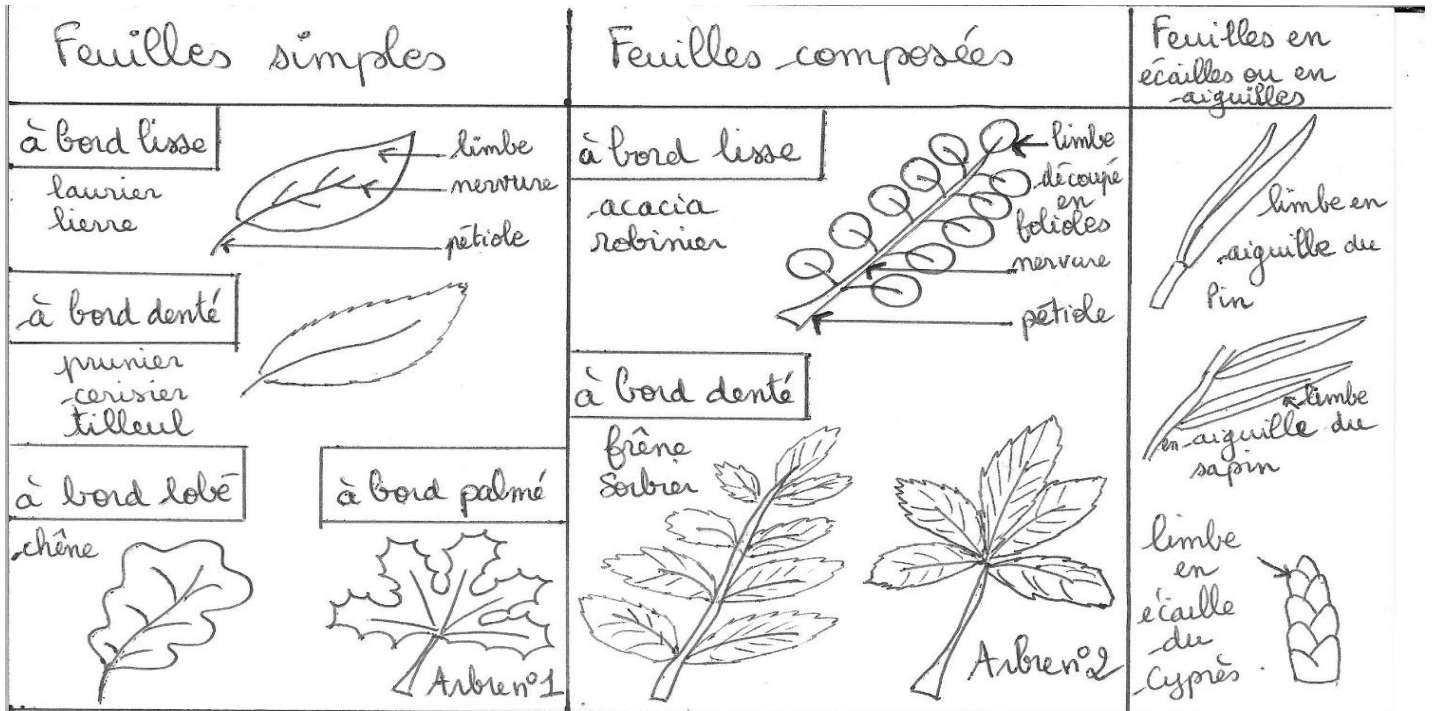 Feuilles simples
à bord lisse
laurier
lierre
limbe
nervure
pétiole
à bord denté
prunier
cerisier
tilleul
à bord lobé
chêne
à bord palmé
Arbre n°1
Feuilles composées
à bord lisse
acacia
robinier
limbe
découpé
en
folioles
nervure
pétiole
à bord denté
frêne
Sorbier
Arbre n°2
Feuilles en
écailles ou en
aiguilles
limbe en
aiguille du
Pin
limbe
en aiguille du
sapin
limbe
en
écaille
du
Cyprès.